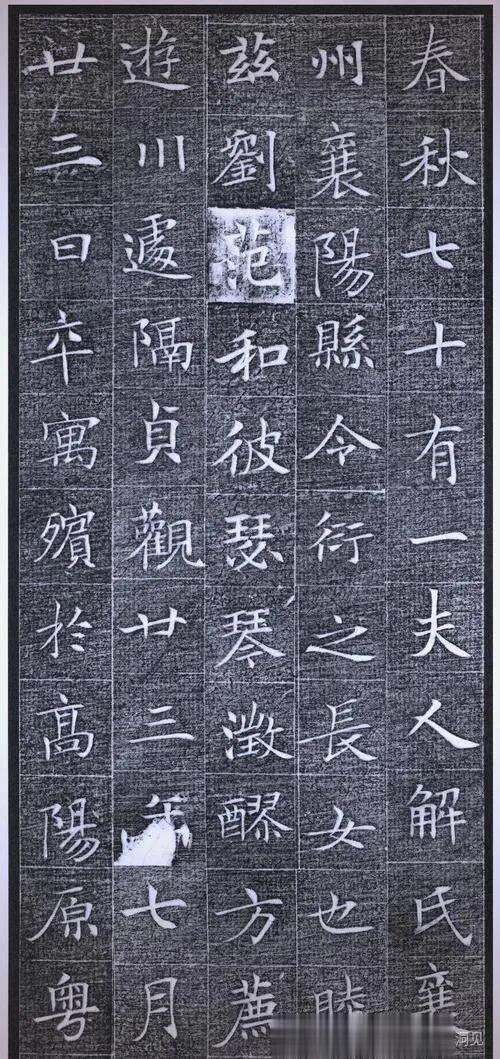 春秋七十有一夫人解氏襄
州襄陽縣令衍之長女也睦
茲劉范和彼瑟琴澂醪方薦
遊川遽隔貞觀廿三年七月
廿三日卒寓殯於高陽原粤
洞见